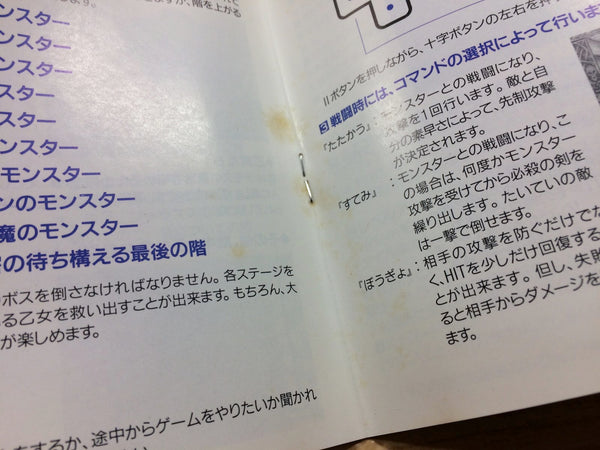 階を上がる
ンスター
ンスター
ンスター
スター
スター
ンスター
モンスター
ンのモンスター
魔のモンスター
の待ち構える最後の階
ボスを倒さなければなりません。各ステージを
る乙女を救い出すことが出来ます。もちろん、大
が楽しめます。
をするか、途中からゲームをやりたいか聞かれ
IIボタンを押しながら、十字ボタンの左右を押
3 戦闘時には、コマンドの選択によって行いま
「たたかう」:モンスターとの戦闘になり、
攻撃を1回行います。敵と自
分の素早さによって、先制攻撃
が決定されます。
「すてみ」:モンスターとの戦闘になり、こ
の場合は、何度かモンスター
攻撃を受けてから必殺の剣を
繰り出します。たいていの敵
は一撃で倒せます。
「ぼうぎょ」:相手の攻撃を防ぐだけでな
く、HITを少しだけ回復する
とが出来ます。但し、失敗
ると相手からダメージを
ます。